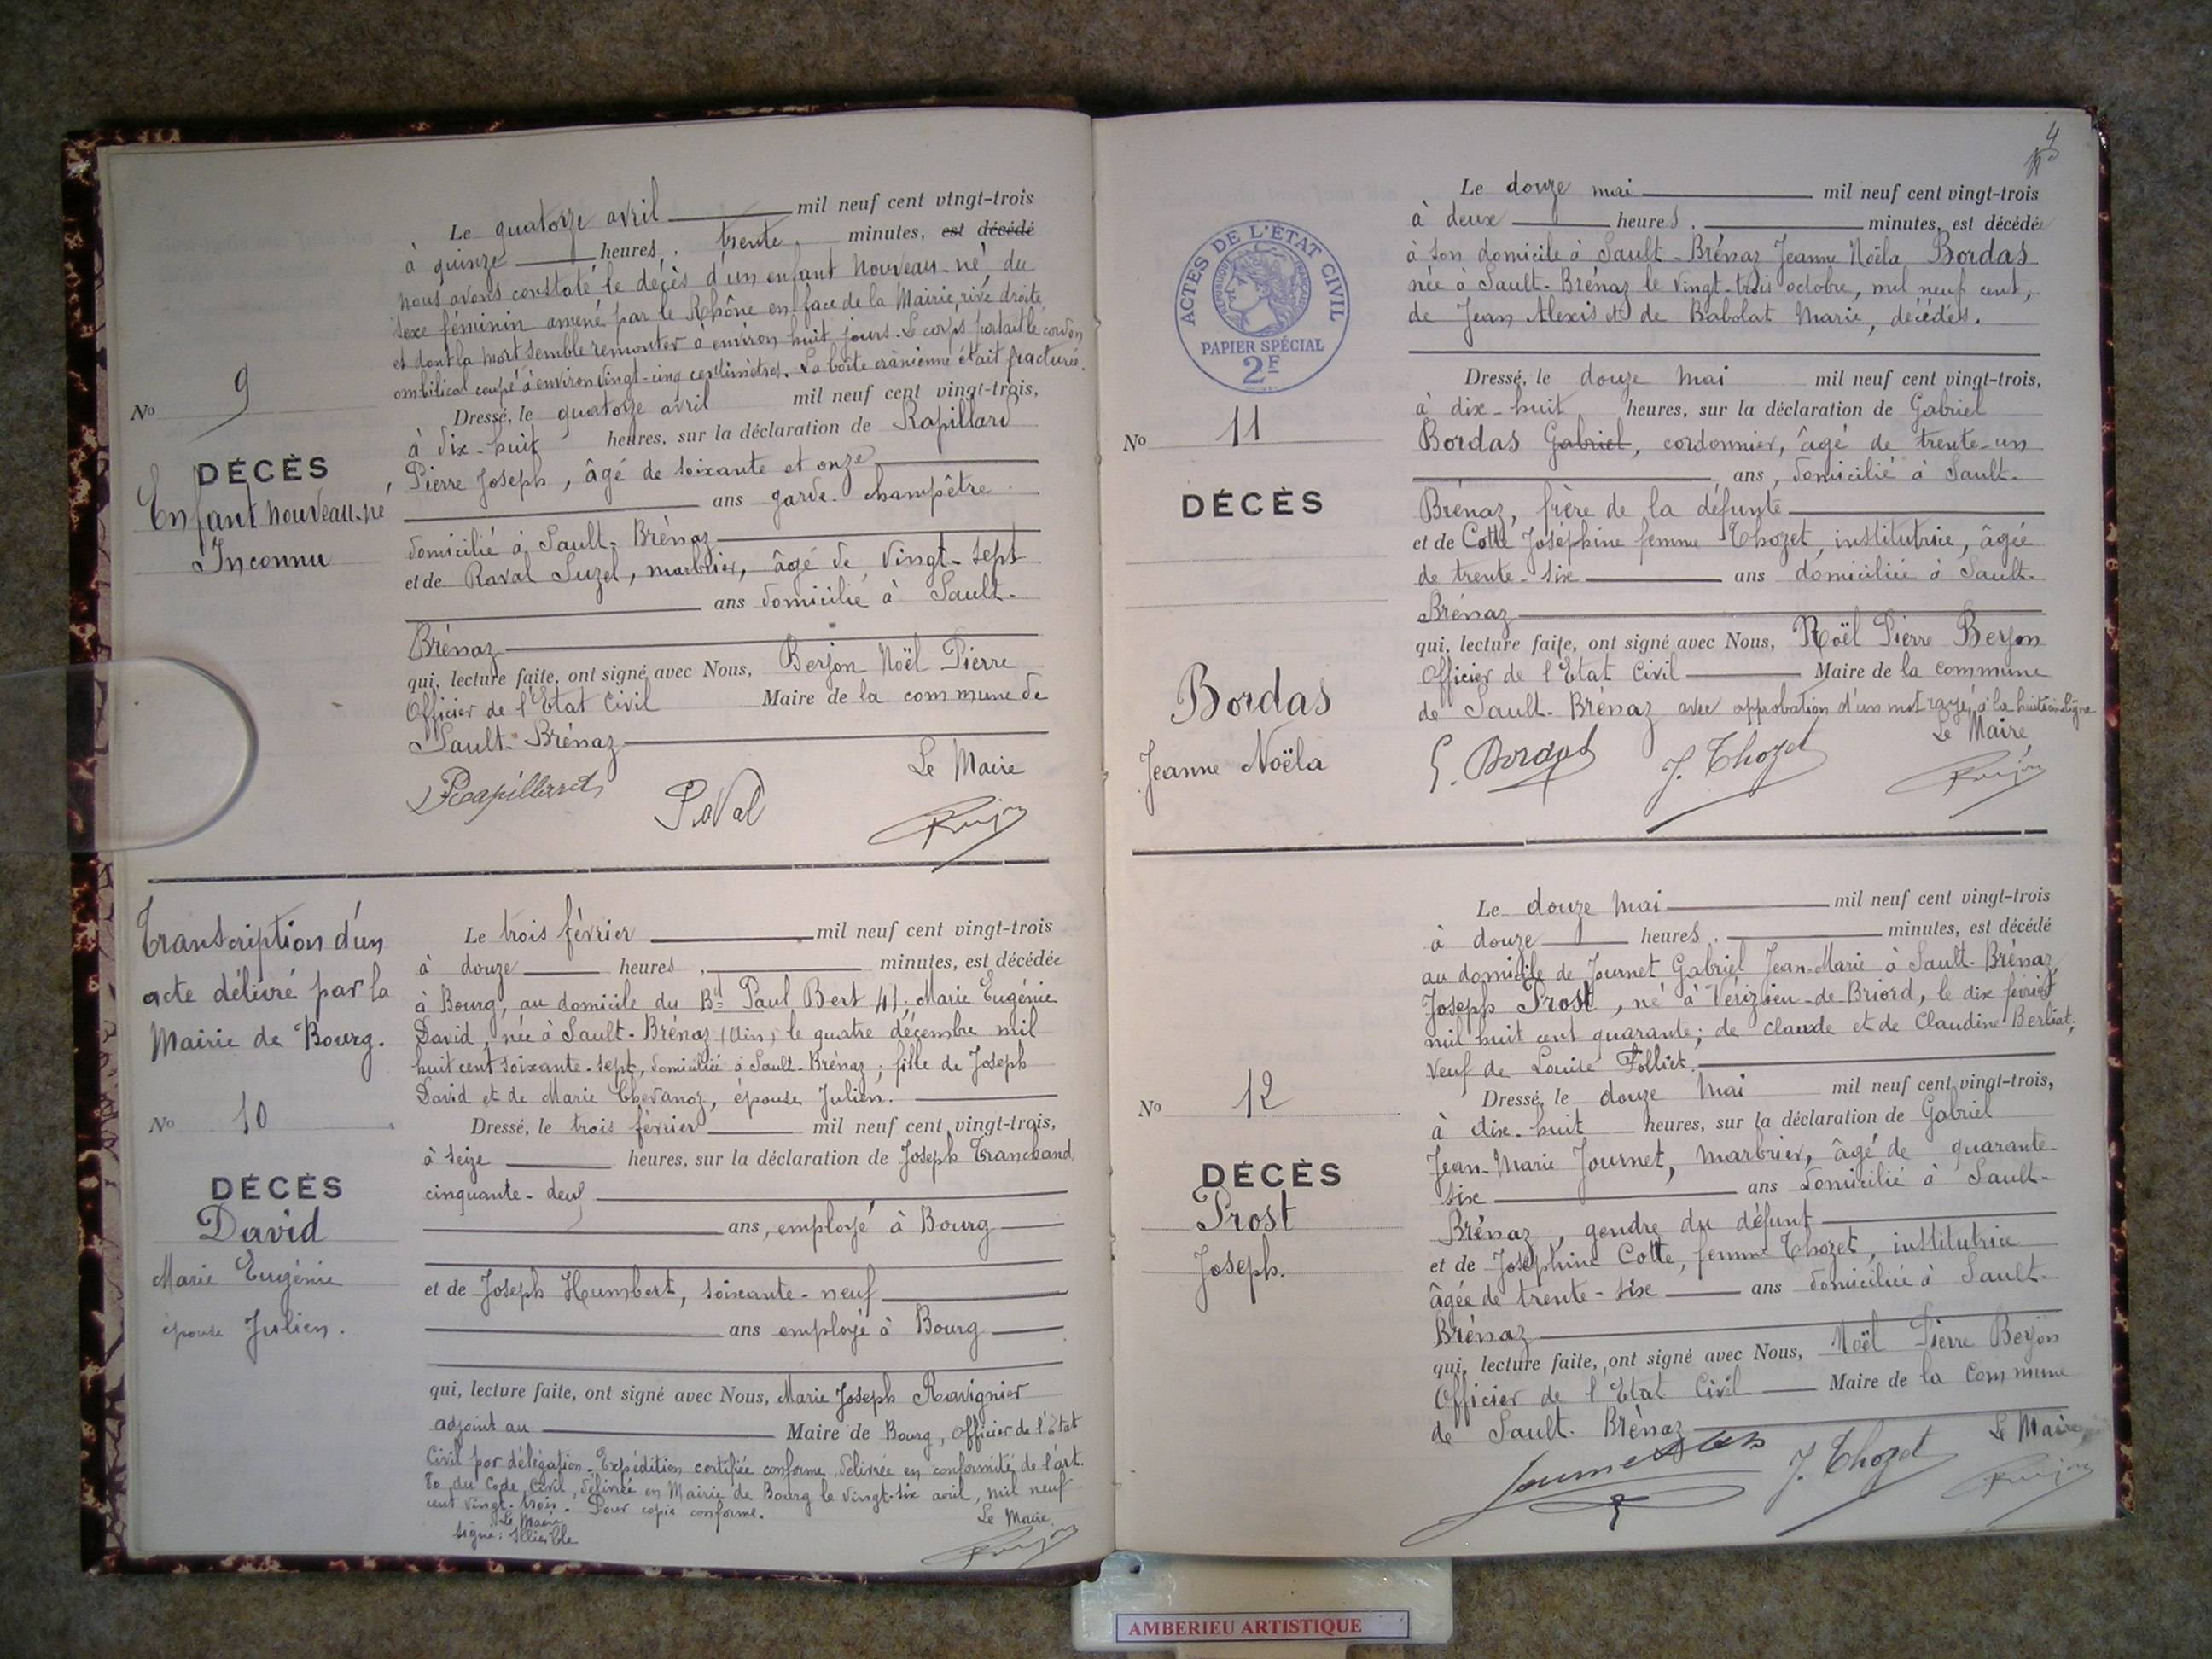 Le quatorze avril mil neuf cent vingt-trois
à quinze heures, trente minutes, est décédé
nous avons constaté le décès d'un enfant nouveau-né du
sexe féminin amené par le Rhône en face de la Mairie, rive droite
et dont la mort semble remonter à environ huit jours. Le corps portait le cordon
ombilical coupé à environ vingt-cinq centimètres. La boîte crânienne était fracturée.
No 9
DÉCÈS
Enfant nouveau-né
Inconnu
Dressé, le quatorze avril mil neuf cent vingt-trois,
à dix-huit heures, sur la déclaration de Rapillard
Pierre Joseph, âgé de soixante et onze
ans garde-champêtre
domicilié à Sault-Brénaz
et de Raval Suzel, marbrier, âgé de vingt-sept
ans domicilié à Sault-
Brénaz
qui, lecture faite, ont signé avec Nous, Berjon Noël Pierre
Officier de l'Etat Civil Maire de la commune de
Sault-Brénaz
Le Maire
Rapillard
Raval
Transcription d'un
acte délivré par la
Mairie de Bourg.
No 10
DÉCÈS
David
Marie Eugénie
épouse Julien.
Le trois février mil neuf cent vingt-trois
à douze heures, minutes, est décédée
à Bourg, au domicile du Bd Paul Bert 41; Marie Eugénie
David, née à Sault-Brénaz (Ain) le quatre décembre mil
huit cent soixante-sept, domiciliée à Sault-Brénaz; fille de Joseph
David et de Marie Chevanoz, épouse Julien.
Dressé, le trois février mil neuf cent vingt-trois,
à seize heures, sur la déclaration de Joseph Tranchand
cinquante-deux
ans, employé à Bourg
et de Joseph Humbert, soixante-neuf
ans employé à Bourg
qui, lecture faite, ont signé avec Nous, Marie Joseph Ravignier
adjoint au Maire de Bourg, officier de l'Etat
Civil par délégation. Expédition certifiée conforme, délivrée en conformité de l'art.
80 du Code Civil, délivrée en Mairie de Bourg le vingt-six avril, mil neuf
cent vingt-trois. Pour copie conforme.
Le Maire
signé: Illisible
Le Maire
4
ACTES DE L'ETAT CIVIL
REPUBLIQUE FRANÇAISE
PAPIER SPÉCIAL
2F
No 11
DÉCÈS
Bordas
Jeanne Noëla
Le douze mai mil neuf cent vingt-trois
à deux heures. minutes, est décédée
à son domicile à Sault-Brénaz Jeanne Noëla Bordas
née à Sault-Brénaz le vingt-trois octobre, mil neuf cent,
de Jean Alexis et de Babolat Marie, décédés.
Dressé, le douze mai mil neuf cent vingt-trois,
à dix-huit heures, sur la déclaration de Gabriel
Bordas Gabriel, cordonnier, âgé de trente-un
ans, domicilié à Sault-
Brénaz, frère de la défunte
et de Cotte Joséphine femme Thozet, institutrice, âgée
de trente-six ans domiciliée à Sault-
Brénaz
qui, lecture faite, ont signé avec Nous, Noël Pierre Berjon
Officier de l'Etat Civil Maire de la commune
de Sault-Brénaz avec approbation d'un mot rayé, à la huitième ligne
Le Maire
G. Bordas
J. Thozet
No 12
DÉCÈS
Prost
Joseph.
Le douze mai mil neuf cent vingt-trois
à douze heures. minutes, est décédé
au domicile de Journet Gabriel Jean-Marie à Sault-Brénaz,
Joseph Prost, né à Vérizieu-de-Briord, le dix février
mil huit cent quarante; de Claude et de Claudine Berliat;
veuf de Louise Folliet.
Dressé, le douze mai mil neuf cent vingt-trois,
à dix-huit heures, sur la déclaration de Gabriel
Jean-Marie Journet, marbrier, âgé de quarante-
six ans domicilié à Sault-
Brénaz, gendre du défunt
et de Joséphine Cotte, femme Thozet, institutrice
âgée de trente-six ans domiciliée à Sault-
Brénaz
qui, lecture faite, ont signé avec Nous, Noël Pierre Berjon
Officier de l'Etat Civil Maire de la commune
de Sault-Brénaz
Le Maire
Journet
J. Thozet
AMBERIEU ARTISTIQUE